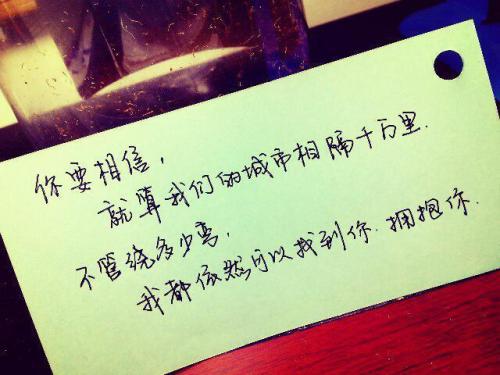 你要相信,
就算我们的城市相隔千万里.
不管绕多少弯,
我都依然可以找到你.拥抱你.